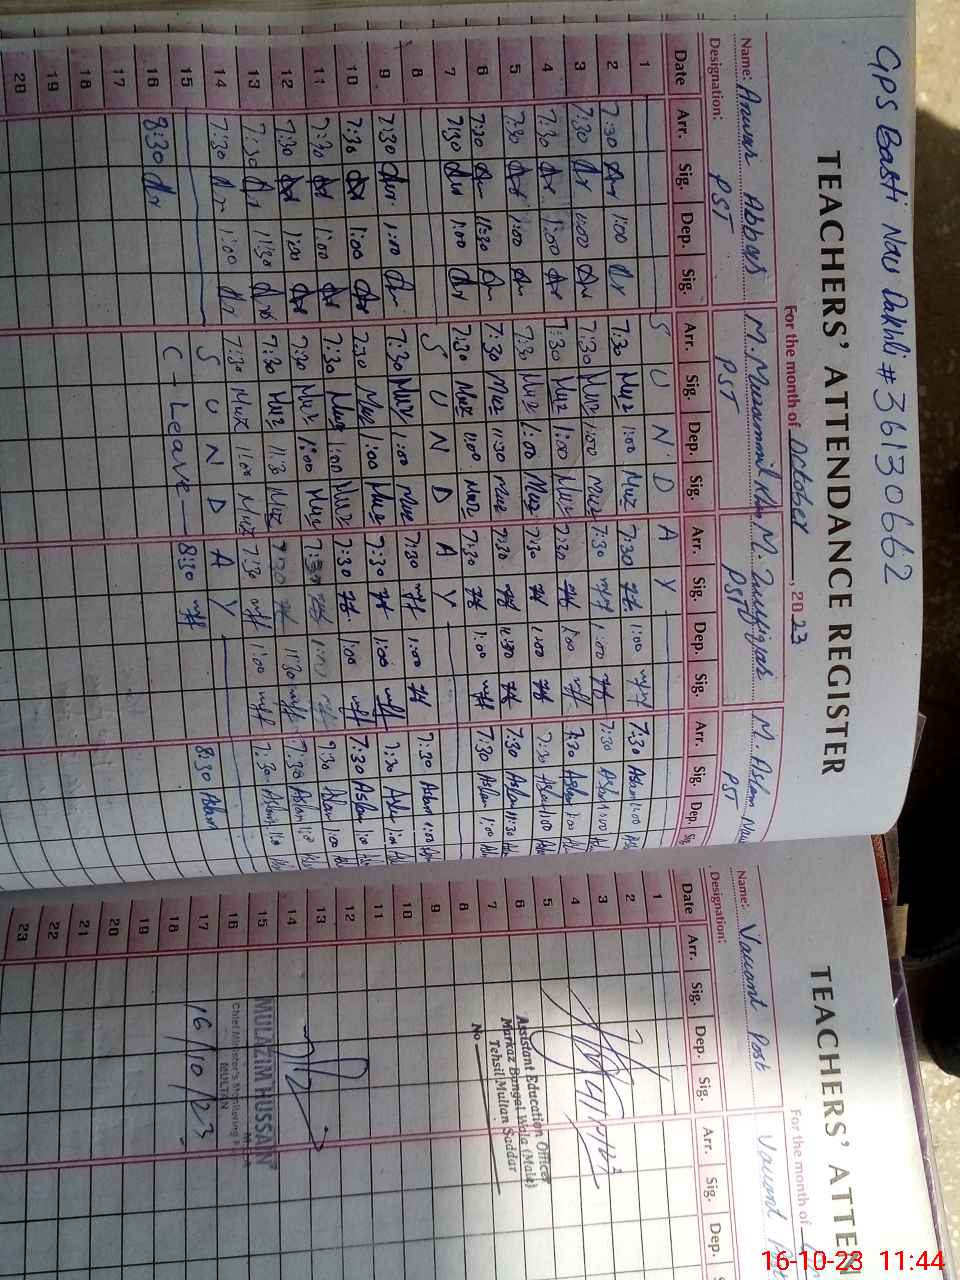 GPS Basti Nau Dakhli # 36130662
TEACHERS' ATTENDANCE REGISTER
For the month of October, 2023
Name: Anwar Abbas M. Muzammil M. Zulfiqar M. Aslam
Designation: PST PST PST PST
Date Arr. Sig. Dep. Sig. Arr. Sig. Dep. Sig. Arr. Sig. Dep. Sig. Arr. Sig. Dep. Sig.
1 S U N D A Y
2 7:30 1:00 7:30 Muz 1:00 Muz 7:30 1:00 7:30 Aslam 1:00
3 7:30 1:00 7:30 Muz 1:00 Muz 7:30 1:00 7:30 Aslam 1:00
4 7:30 1:00 7:30 Muz 1:00 Muz 7:30 1:00 7:30 Aslam 1:00
5 7:30 1:00 7:30 Muz 1:00 Muz 7:30 1:00 7:30 Aslam 1:00
6 7:30 11:30 7:30 Muz 11:30 Muz 7:30 11:30 7:30 Aslam 11:30
7 7:30 1:00 7:30 Muz 1:00 Muz 7:30 1:00 7:30 Aslam 1:00
8 S U N D A Y
9 7:30 1:00 7:30 Muz 1:00 Muz 7:30 1:00 7:30 Aslam 1:00
10 7:30 1:00 7:30 Muz 1:00 Muz 7:30 1:00 7:30
11 7:30 1:00 7:30 Muz 1:00 Muz 7:30 1:00 7:30 Aslam
12 7:30 1:00 7:30 Muz 1:00 Muz 7:30 1:00 7:30
13 7:30 11:30 7:30 Muz Muz 7:30 11:30 7:30 Aslam
14 7:30 1:00 7:30 Muz 1:00 Muz 7:30 1:00 7:30 Aslam
15 S U N D A Y
16 8:30 C - Leave 8:30 8:30 Aslam
17
18
19
20
TEACHERS' ATTEN
For the month of
Name: Vaccant Post Vaccant
Designation:
Date Arr. Sig. Dep. Sig. Arr. Sig. Dep.
1
2
3
4
5
6
7
8
9
10
11
12
13
14
15
16
17
18
19
20
21
22
23
Assistant Education Officer
Markaz Bangal Wala (Male)
Tehsil Multan Saddar
No
MULAZIM HUSSAN
Chief Minister's Monitoring
MULTAN
16/10/23
16-10-23 11:44